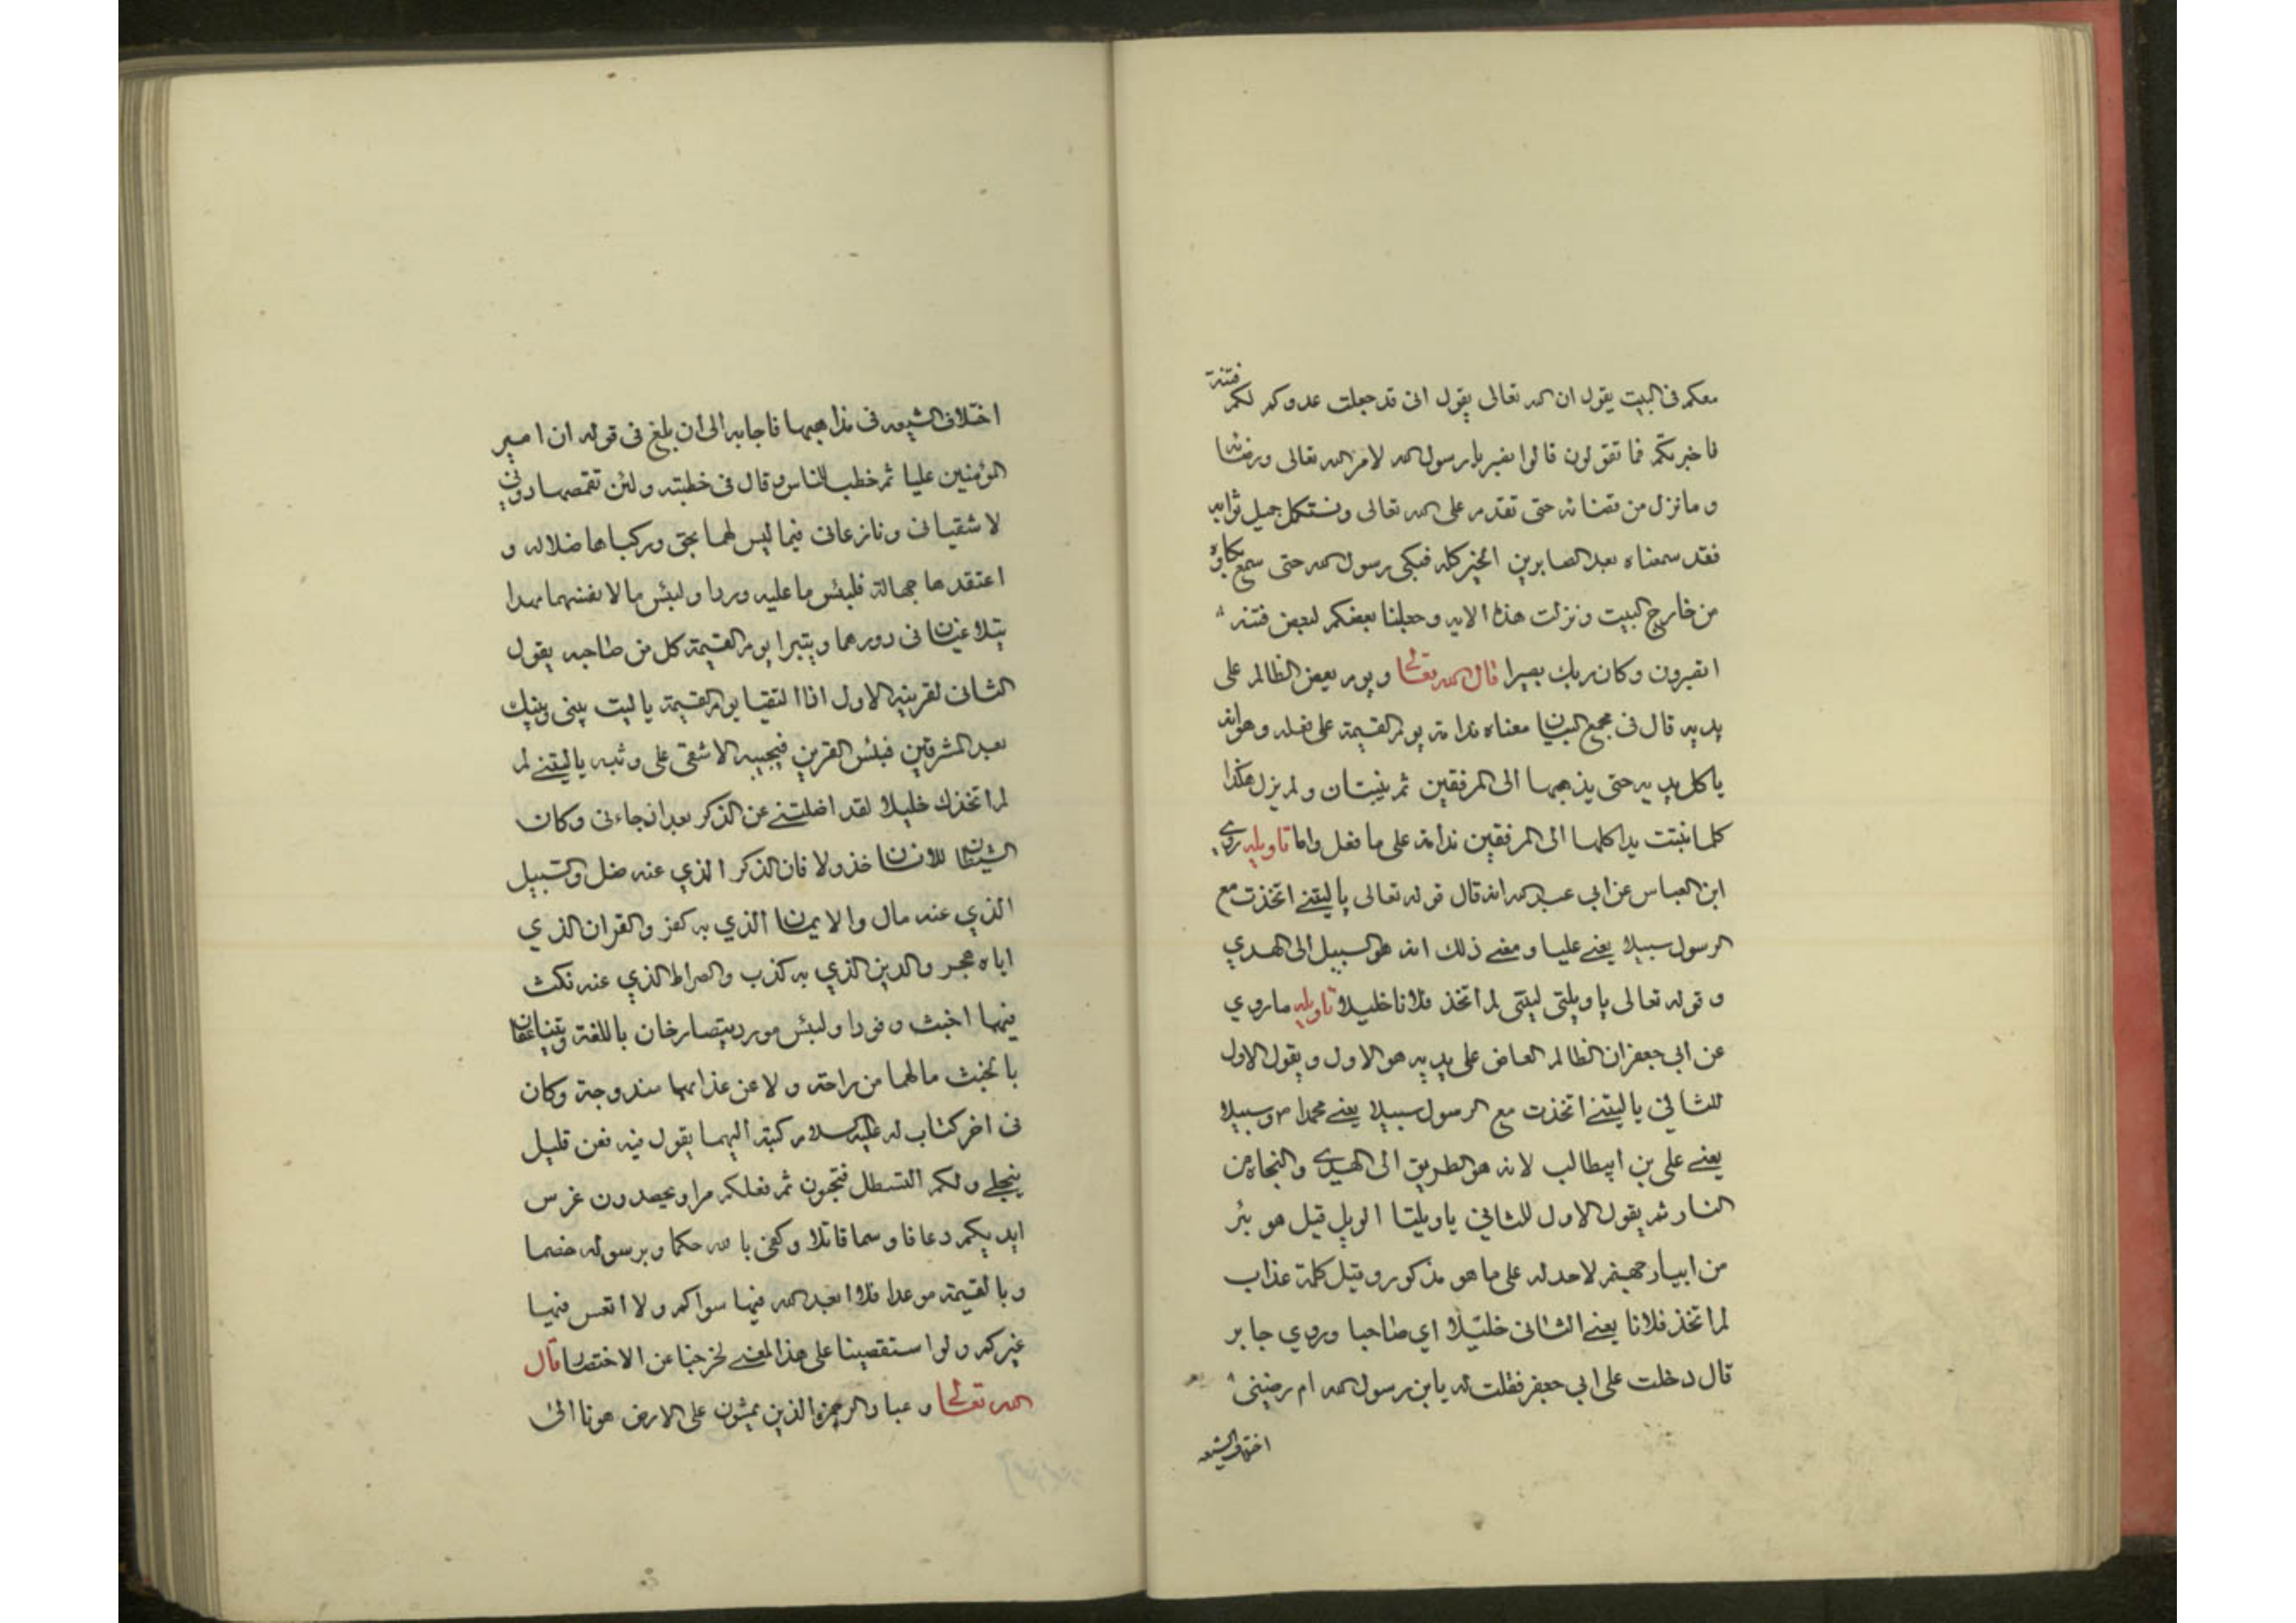 معكم فى البيت يقول ان الله تعالى يقول انى قد جعلت عدوكم لكم فتنة
فاخبرتكم فما تقولون قالوا نصبر يا رسول الله لامر الله تعالى ورضائه
و ما نزل من قضائه حتى تقدم على الله تعالى ونستكمل جميل ثوابه
فقد سمعناه يعد الصابرين الخير كله فبكى رسول الله حتى سمع بكاؤه
من خارج البيت ونزلت هذه الايه وجعلنا بعضكم لبعض فتنة
اتصبرون وكان ربك بصيرا قال الله تعالى ويوم يعض الظالم على
يديه قال فى مجمع البيان معناه ندامة يوم القيمة على فعله وهو انه
ياكل يديه حتى يذهبها الى المرفقين ثم ينبتان ولم يزل هكذا
كلما نبتت يدا كلها الى المرفقين ندامة على ما فعل واما تاويله روى
ابن العباس عن ابي عبد الله انه قال قوله تعالى ياليتنے اتخذت مع
الرسول سبيلا يعنے عليا ومعنے ذلك انه هو السبيل الى الهدي
و قوله تعالى يا ويلتى ليتنى لم اتخذ فلانا خليلا تاويله ما روي
عن ابي جعفر ان الظالم العاض على يديه هو الاول ويقول الاول
للثاني ياليتنے اتخذت مع الرسول سبيلا يعنے محمدا ص وسبيلا
يعنے على بن ابيطالب لانه هو الطريق الى الهدى والنجاة من
النار ثم يقول الاول للثاني ياويلتا الويل قيل هو بئر
من ابيار جهنم لاحد له على ما هو مذكور وقيل كلمة عذاب
لم اتخذ فلانا يعنے الثانى خليلا اي صاحبا وروي جابر
قال دخلت على ابي جعفر فقلت له يابن رسول الله ام رضينى
اختلاف الشيعه
اختلاف الشيعه فى مذاهبها فاجابه الى ان بلغ فى قوله ان امير
المؤمنين عليا ثم خطب للناس وقال فى خطبته ولئن تقمصها دونى
لا شقيانى ونازعانى فيما ليس لهما بحق وركباها ضلاله و
اعتقدها جهالة فلبئس ما عليه وردا ولبئس ما لانفسهما مهدا
يتلاعنان فى دورهما ويتبرا يوم القيمة كل من صاحبه يقول
الثانى لقرينه الاول اذا التقيا يوم القيمة يا ليت بينى وبينك
بعد المشرقين فبئس القرين فيجيبه الاشقى على وثبه ياليتنے لم
لم اتخذك خليلا لقد اضلتنے عن الذكر بعد اذ جاءنى وكان
الشيطان للانسان خذولا فان الذكر الذي عنه ضل والسبيل
الذي عنه مال والايمان الذي به كفر والقران الذي
اياه هجر والدين الذي به كذب والصراط الذي عنه نكث
فيها اخبث وفودا ولبئس مورد يتصارخان باللغة ويتناعقان
بالخبث مالهما من راحة ولا عن عذابهما مندوحة وكان
فى اخر كتاب له عليه السلام كتبه اليهما يقول فيه فعن قليل
ينجلے ولكم القسطل فتجون ثم فعلكم مرا ويحصدون غرس
ايديكم دعافا وسما قاتلا وكفى بالله حكما وبرسوله خصما
وبالقيمة موعدا فلا ابعد الله فيها سواكم ولا اتعس فيها
غيركم ولو استقصينا على هذا المعنے لخرجنا عن الاختصار قال
الله تعالى وعباد الرحمن الذين يمشون على الارض هونا الى